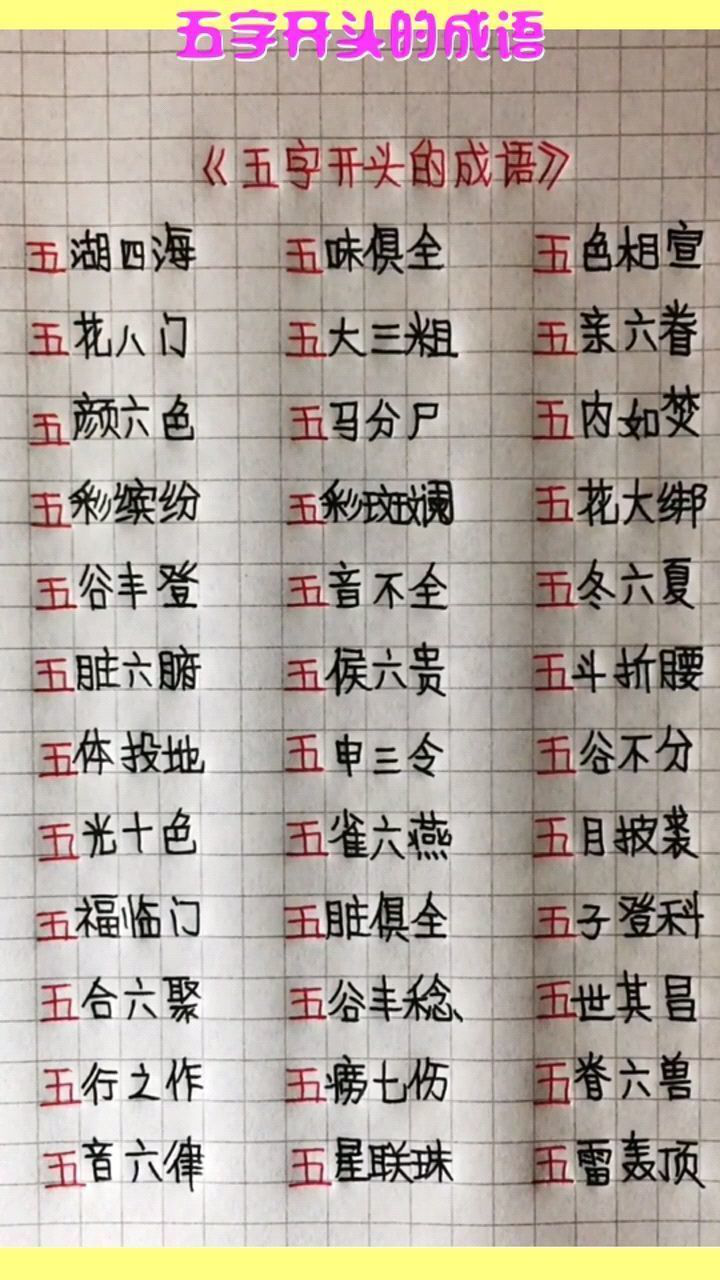 五字开头的成语
《五字开头的成语》
五湖四海 五味俱全 五色相宣
五花八门 五大三粗 五亲六眷
五颜六色 五马分尸 五内如焚
五彩缤纷 五彩斑斓 五花大绑
五谷丰登 五音不全 五冬六夏
五脏六腑 五侯六贵 五斗折腰
五体投地 五申三令 五谷不分
五光十色 五雀六燕 五月披裘
五福临门 五脏俱全 五子登科
五合六聚 五谷丰稔、 五世其昌
五行之作 五痨七伤 五脊六兽
五音六律 五星联珠 五雷轰顶